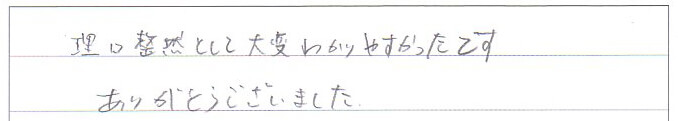 理口整然として大変わかりやすかったです
ありがとうございました.